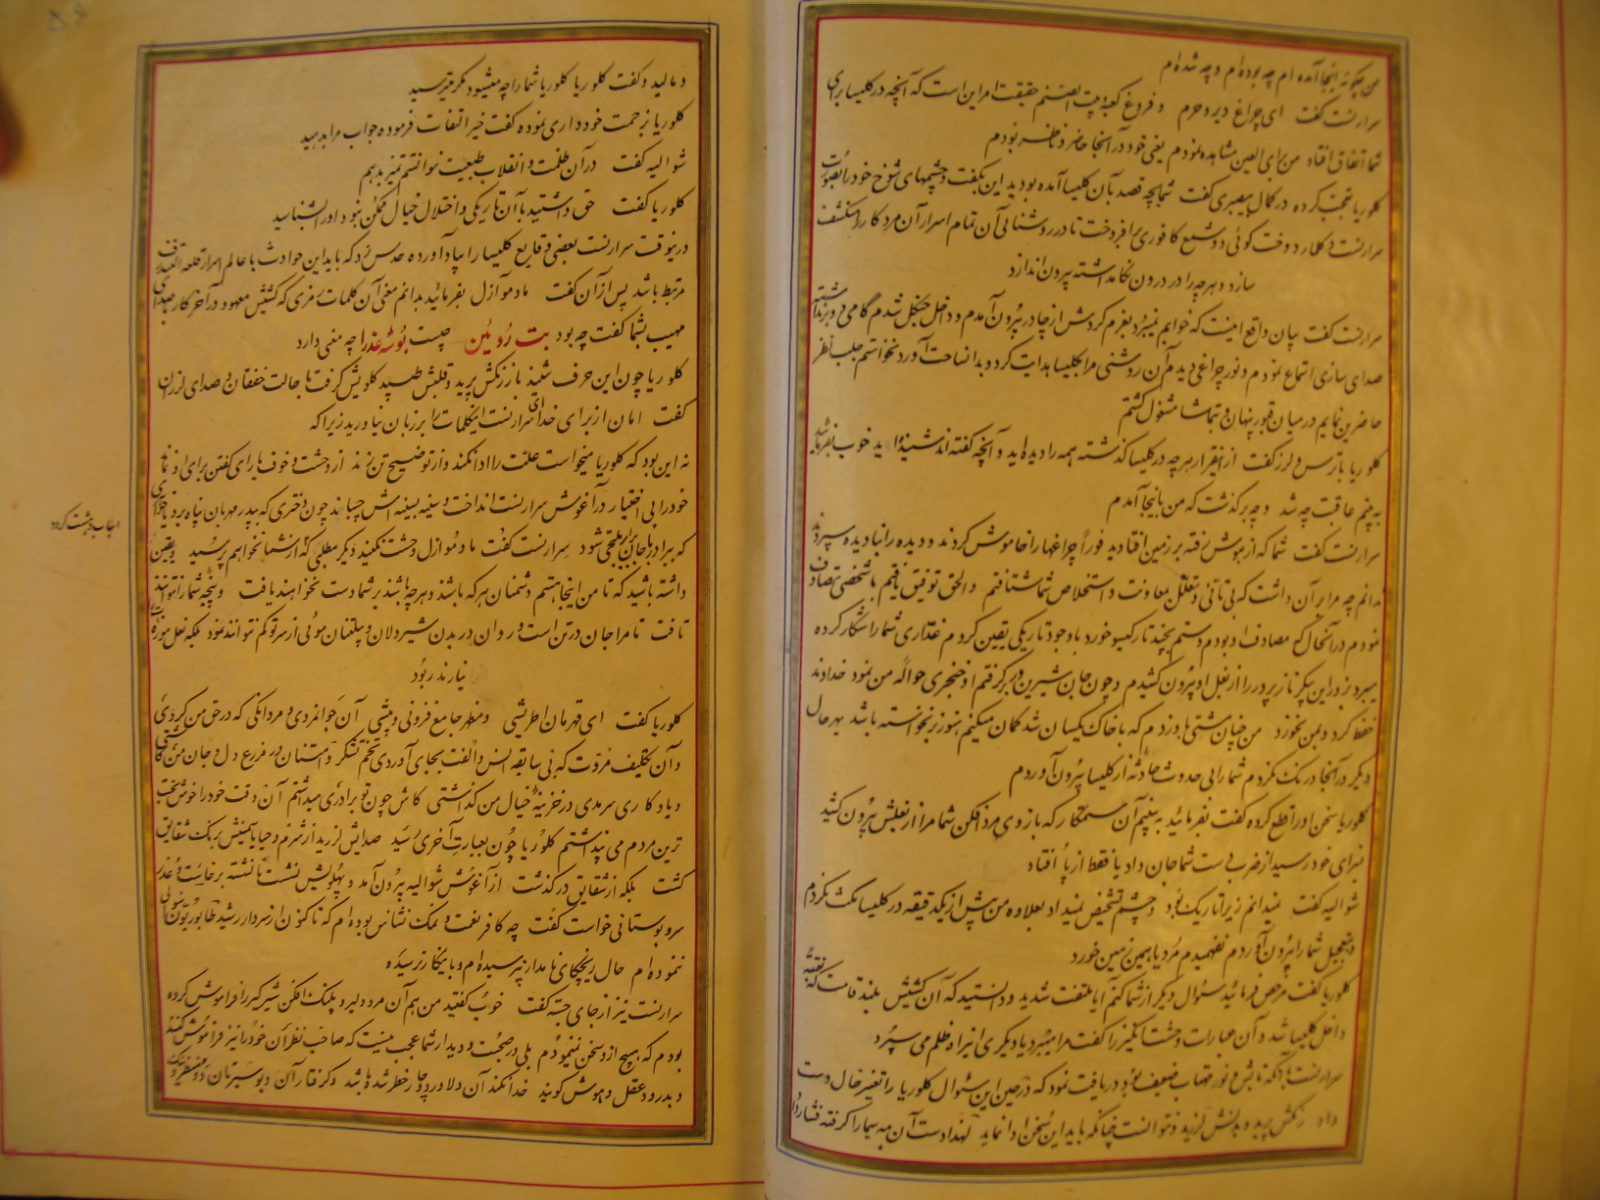 من چگونه اینجا آمده ام چه بوده ام و چه شده ام
سرارنست گفت ای چراغ دیر و حرم و فروغ کعبه و بیت الصنم حقیقت امر این است که آنچه در کلیسا برای
شما اتفاق افتاد من برای العین مشاهده نمودم یعنی خود در آنجا حاضر و ناظر بودم
کلوریا تعجب کرده در کمال بیصبری گفت شما بچه قصد بآن کلیسا آمده بودید این بگفت و چشمهای شوخ خود را بصورت
سرارنست دوخت گوئی دو شمع کافوری برافروخت تا در روشنائی آن تمام اسرار آن مرد کار را منکشف
سازد و هرچه را در درون نگاهداشته بیرون اندازد
سرارنست گفت بیان واقع اینست که خوابم نمیبرد بعزم گردش از چادر بیرون آمدم و داخل جنگل شدم گامی دو برنداشته
صدای سازی استماع نمودم و نور چراغی دیدم آن روشنی مرا بکلیسا هدایت کرد و بدانساحت آورد نخواستم جلب نظر
حاضرین نمایم در میان قبور پنهان و بتماشا مشغول گشتم
کلوریا با ترس و لرز گفت از اینقرار هرچه در کلیسا گذشته همه را دیده اید و آنچه گفته اند شنیده اید خوب بفرمائید
به بینم عاقبت چه شد و چه برگذشت که من باینجا آمدم
سرارنست گفت شما که از هوش رفته بر زمین افتادید فوراً چراغها را خاموش کردند و دیده را بنادیده سپردند
ندانم چه مرا بر آن داشت که بی تانی و تعلل بمعاونت و استخلاص شما شتافتم والحق توفیق یافتم با شخصی تصادف
نمودم در آنحال که مصادف او بودم دستم بچند تار گیسو خورد با وجود تاریکی یقین کردم غداری شما را شکار کرده
میبرد بزور این پیکر نازپرور را از بغل او بیرون کشیدم و چون جان شیرین در بر گرفتم او خنجری حواله من نمود خداوند
حفظ کرد و بمن نخورد من چنان مشتی باو زدم که با خاک یکسان شد گمان میکنم هنوز برنخواسته باشد بهرحال
دیگر در آنجا درنگ نکردم شما را بی حدوث حادثه از کلیسا بیرون آوردم
کلوریا سخن او را قطع کرده گفت بفرمائید به بینم آن ستمکار که بازوی مرد افکن شما مرا از بغلش بیرون کشید
بسزای خود رسید از ضرب دست شما جان داد یا فقط از پا افتاد
شوالیه گفت نمیدانم زیرا تاریک بود و چشم تشخیص نمیداد بعلاوه من بیش از یکدقیقه در کلیسا مکث نکردم
و بتعجیل شما را بیرون آوردم نفهمیدم مرد یا همین زمین خورد
کلوریا گفت مرخص فرمائید سئوال دیگر از شما کنم آیا ملتفت شدید و دانستید که آن کشیش بلند قامت که بغتة
داخل کلیسا شد و آن عبارات وحشت انگیز را گفت مرا میبرد یا دیگری این راه ظلم می سپرد
سرارنست با آنکه تابش و نور مهتاب ضعیف بود دریافت نمود که در حین این سئوال کلوریا را تغییر حال دست
داد رنگش پرید و بدنش لرزید و نتوانست چنانکه باید این سخن ادا نماید لهذا دست آن مه سیما را گرفته فشار داد
و مالید و گفت کلوریا کلوریا شما را چه میشود مگر میترسید
کلوریا بزحمت خودداری نموده گفت خیر التفات فرموده جواب مرا بدهید
شوالیه گفت در آن ظلمت و انقلاب طبیعت نتوانستم تمیز بدهم
کلوریا گفت حق داشتید با آن تاریکی و اختلال خیال ممکن نبود او را بشناسید
درینوقت سرارنست بعضی وقایع کلیسا را بیاد آورده حدس زد که باید این حوادث با عالم اسرار قلعه
مرتبط باشد پس از آن گفت مادموازل بفرمائید بدانم معنی آن کلمات رمزی که کشیش معهود در آخر کار بصدای
مهیب بشما گفت چه بود بت روئین چیست بوسه عذرا چه معنی دارد
کلوریا چون این حرف شنید باز رنگش پرید و قلبش طپید گلویش گرفت با حالت خفقان و صدای لرزان
گفت امان از برای خدای سرارنست اینکلمات را بر زبان نیاورید زیرا که
نه این بود که کلوریا میخواست علت را ادا نکند و از توضیح تن زند از وحشت و خوف یارای گفتن برای او نماند
خود را بی اختیار در آغوش سرارنست انداخت و سینه بسینه اش چسباند چون دختری که بپدر مهربان پناه برد یا خواهری
که ببرادر با جان برابر ملتجی شود سرارنست گفت مادموازل وحشت نکنید دیگر مطلبی که از شما نخواهم پرسید و یقین
ایجاب وحشت کرد
داشته باشید که تا من اینجا هستم دشمنان هر که باشند و هرچه باشند بر شما دست نخواهند یافت و پنجه شما را نتوانند
تافت تا مرا جان در تن است و روان در بدن شیردلان و پیلتنان موئی از سر تو کم نتوانند نمود بلکه نعل موزه ات
نیارند ربود
کلوریا گفت ای قهرمان اطریشی و مظهر جامع فزونی و بیشی آن جوانمردی و مردانگی که در حق من کردی
و آن تکلیف مروت که بی سابقه انس و الفت بجای آوردی تخم تشکر و امتنان در مزرع دل و جان من کاشتی
و یادگاری سرمدی در خزینه خیال من گذاشتی کاش چون تو برادری میداشتم آن وقت خود را خوشبخت
ترین مردم می پنداشتم کلوریا چون بعبارت آخری رسید صدایش لرزید از شرم و حیا یاسمنش برنگ شقایق
گشت بلکه از شقایق درگذشت از آغوش شوالیه بیرون آمد و پهلویش نشست تا نشسته برخاست و عذر
سرو بستانی خواست گفت چه کافر نعمت و نمک نشناس بوده ام که تا کنون از سردار رشید طابوریون سؤالی
ننموده ام حال ریچکای نامدار نپرسیده ام و باینکار نرسیده
سرارنست نیز از جای جسته گفت خوب گفتید من هم آن مرد دلیر و پلنگ افکن شیرگیر را فراموش کرده
بودم که هیچ از او سخن ننمودم بلی در صحبت و دیدار شما عجب نیست که صاحب نظر آن خود را نیز فراموش کند
و بدرود عقل و هوش گوید خدا نکند آن دلاور دچار خطر شده باشد و گرفتار آن